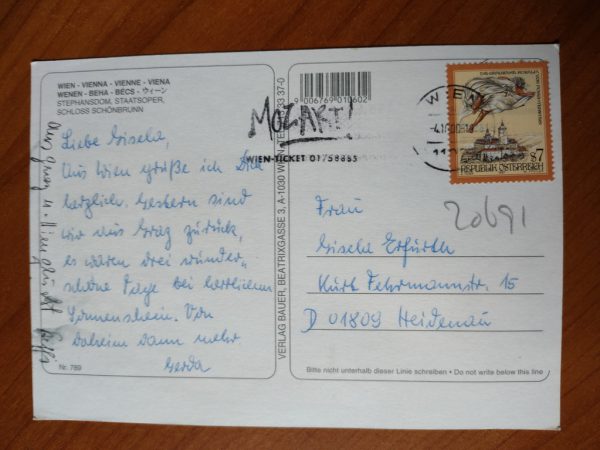 WIEN - VIENNA - VIENNE - VIENA
WENEN - BEHA - BECS - ウィーン
STEPHANSDOM, STAATSOPER,
SCHLOSS SCHÖNBRUNN
Liebe Gisela,
Aus Wien grüße ich Dich
herzlich. Gestern sind
wir aus Graz zurück,
es waren drei wunder-
schöne Tage bei herrlichem
Sonnenschein. Von
daheim dann mehr
Gerda
Nr. 789
VERLAG BAUER, BEATRIXGASSE 3, A-1030 WIEN
9 006769 010602
MOZART!
WIEN-TICKET 01/58885
WIEN
REPUBLIK ÖSTERREICH
S7
20691
Frau
Gisela Erfurth
Kurt Fehrmannstr. 15
D 01809 Heidenau
Bitte nicht unterhalb dieser Linie schreiben • Do not write below this line